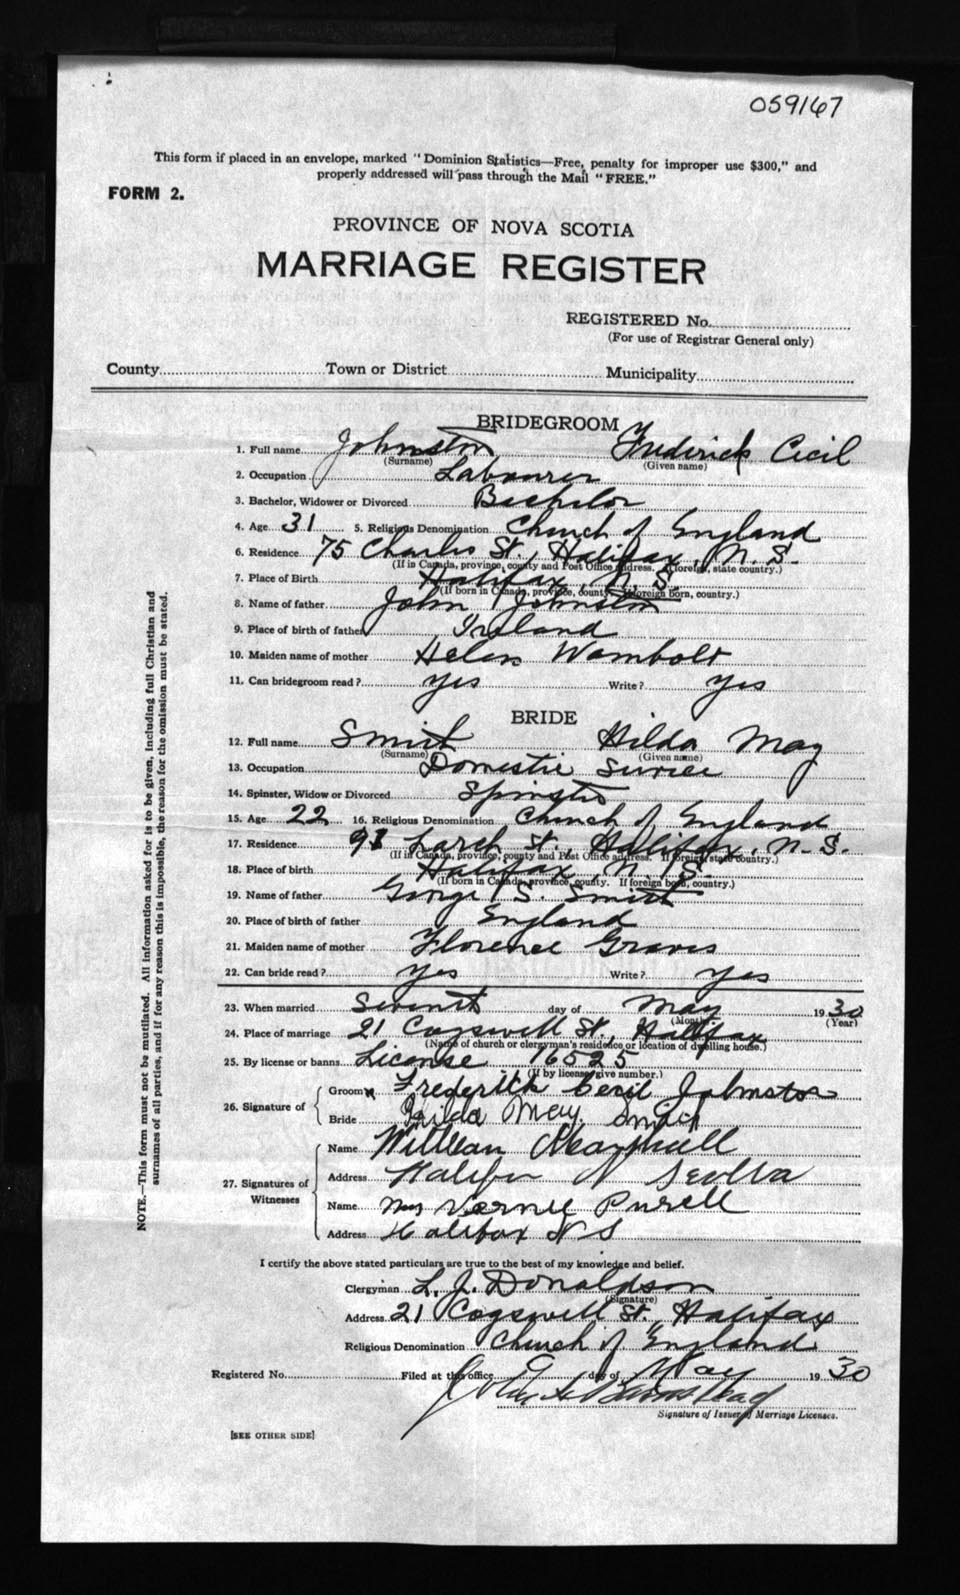 059167
This form if placed in an envelope, marked "Dominion Statistics—Free, penalty for improper use $300," and
properly addressed will pass through the Mail "FREE."
FORM 2.
PROVINCE OF NOVA SCOTIA
MARRIAGE REGISTER
REGISTERED No.
(For use of Registrar General only)
County Town or District Municipality
BRIDEGROOM
1. Full name Johnston Frederick Cecil
(Surname) (Given name)
2. Occupation Labourer
3. Bachelor, Widower or Divorced Bachelor
4. Age 31 5. Religious Denomination Church of England
6. Residence 75 Charles St., Halifax, N.S.
(If in Canada, province, county and Post Office address. If foreign, state country.)
7. Place of Birth Halifax, N.S.
(If born in Canada, province, county. If foreign born, country.)
8. Name of father John Johnston
9. Place of birth of father Ireland
10. Maiden name of mother Helen Wambolt
11. Can bridegroom read? yes Write? yes
BRIDE
12. Full name Smith Hilda May
(Surname) (Given name)
13. Occupation Domestic Service
14. Spinster, Widow or Divorced Spinster
15. Age 22 16. Religious Denomination Church of England
17. Residence 91 Larch St., Halifax, N.S.
(If in Canada, province, county and Post Office address. If foreign, state country.)
18. Place of birth Halifax, N.S.
(If born in Canada, province, county. If foreign born, country.)
19. Name of father George S. Smith
20. Place of birth of father England
21. Maiden name of mother Florence Graves
22. Can bride read? yes Write? yes
23. When married Seventh day of May 1930
(Month) (Year)
24. Place of marriage 21 Cogswell St., Halifax
(Name of church or clergyman's residence or location of dwelling house.)
25. By license or banns License 16525
(If by license, give number.)
26. Signature of Groom Frederick Cecil Johnston
Bride Hilda May Smith
27. Signatures of Witnesses Name William
Address Halifax N Scotia
Name Mrs Vernie Purcell
Address Halifax N S
I certify the above stated particulars are true to the best of my knowledge and belief.
Clergyman L. J. Donaldson
(Signature)
Address 21 Cogswell St., Halifax
Religious Denomination Church of England
Registered No. Filed at this office day of May 1930
Signature of Issuer of Marriage Licenses.
[SEE OTHER SIDE]
NOTE.—This form must not be mutilated. All information asked for is to be given, including full Christian and
surnames of all parties, and if for any reason this is impossible, the reason for the omission must be stated.